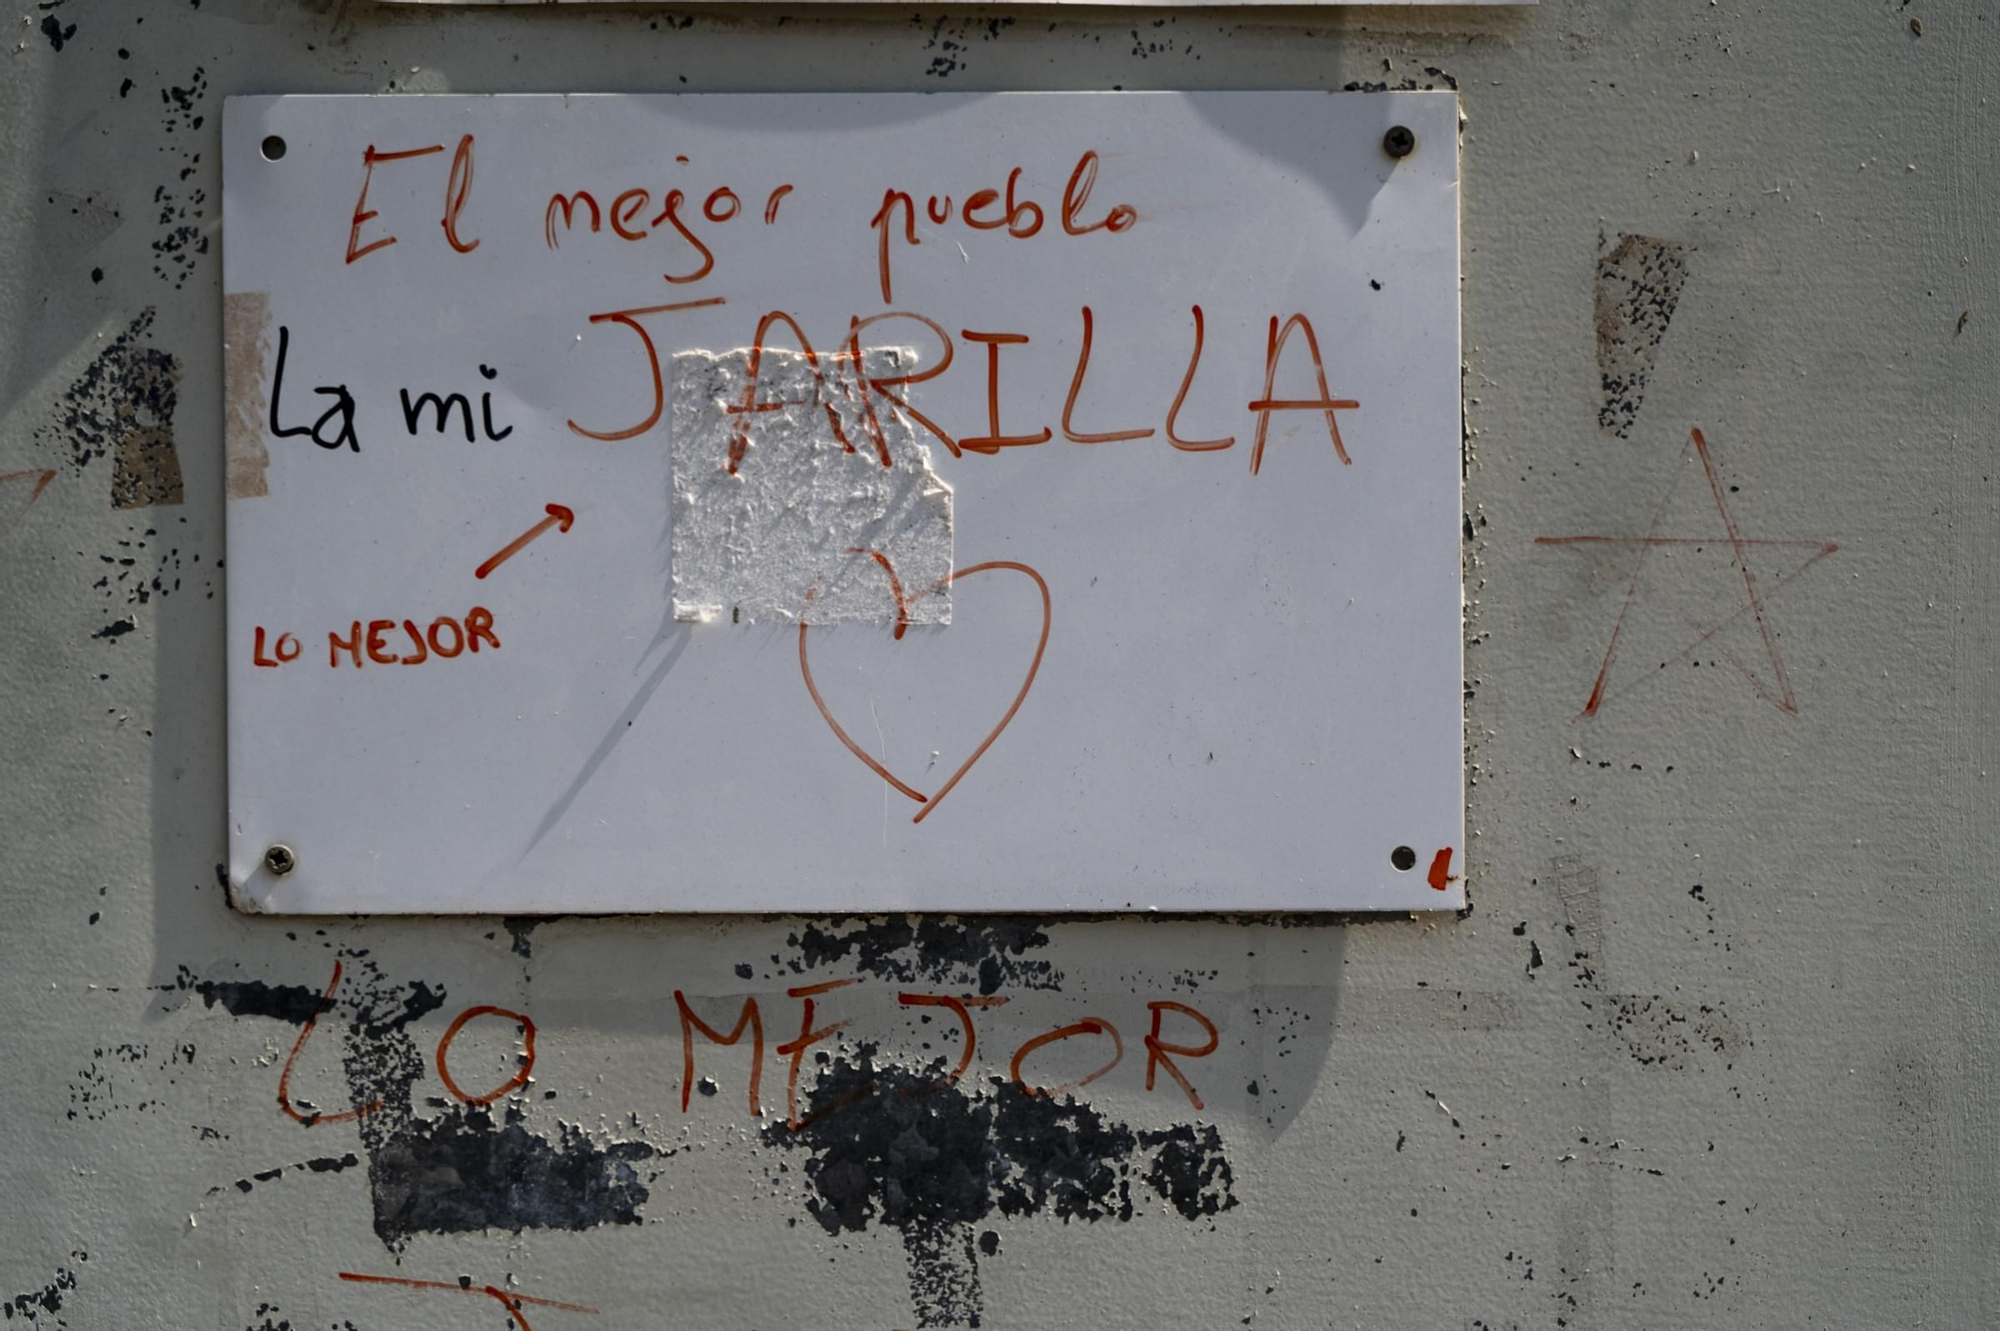 El mejor pueblo
La mi JARILLA
LO MEJOR
LO MEJOR